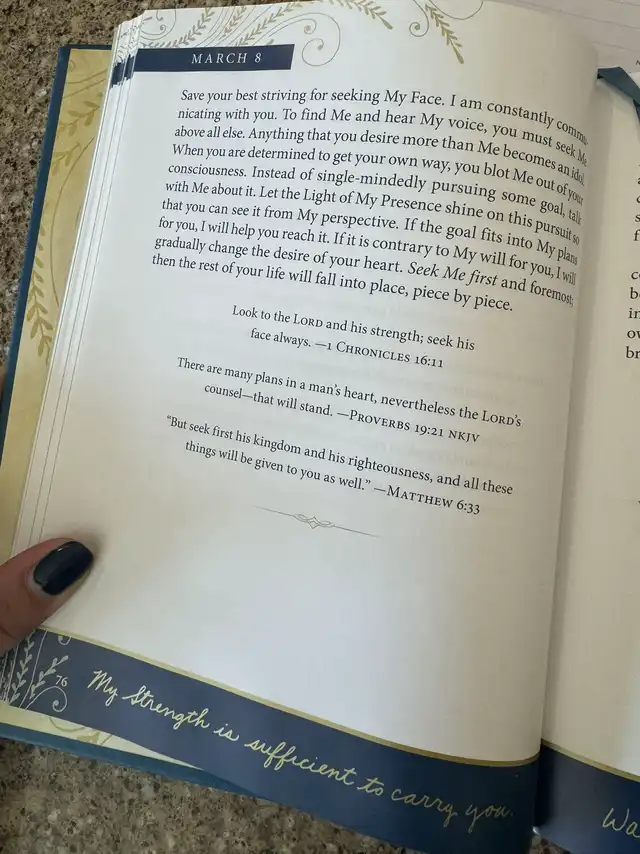 MARCH 8
Save your best striving for seeking My Face. I am constantly commu-
nicating with you. To find Me and hear My voice, you must seek Me
above all else. Anything that you desire more than Me becomes an idol.
When you are determined to get your own way, you blot Me out of your
consciousness. Instead of single-mindedly pursuing some goal, talk
with Me about it. Let the Light of My Presence shine on this pursuit so
that you can see it from My perspective. If the goal fits into My plans
for you, I will help you reach it. If it is contrary to My will for you, I will
gradually change the desire of your heart. Seek Me first and foremost;
then the rest of your life will fall into place, piece by piece.
Look to the LORD and his strength; seek his
face always. —1 CHRONICLES 16:11
There are many plans in a man's heart, nevertheless the LORD's
counsel—that will stand. —PROVERBS 19:21 NKJV
"But seek first his kingdom and his righteousness, and all these
things will be given to you as well." —MATTHEW 6:33
76
My strength is sufficient to carry you.
Wa